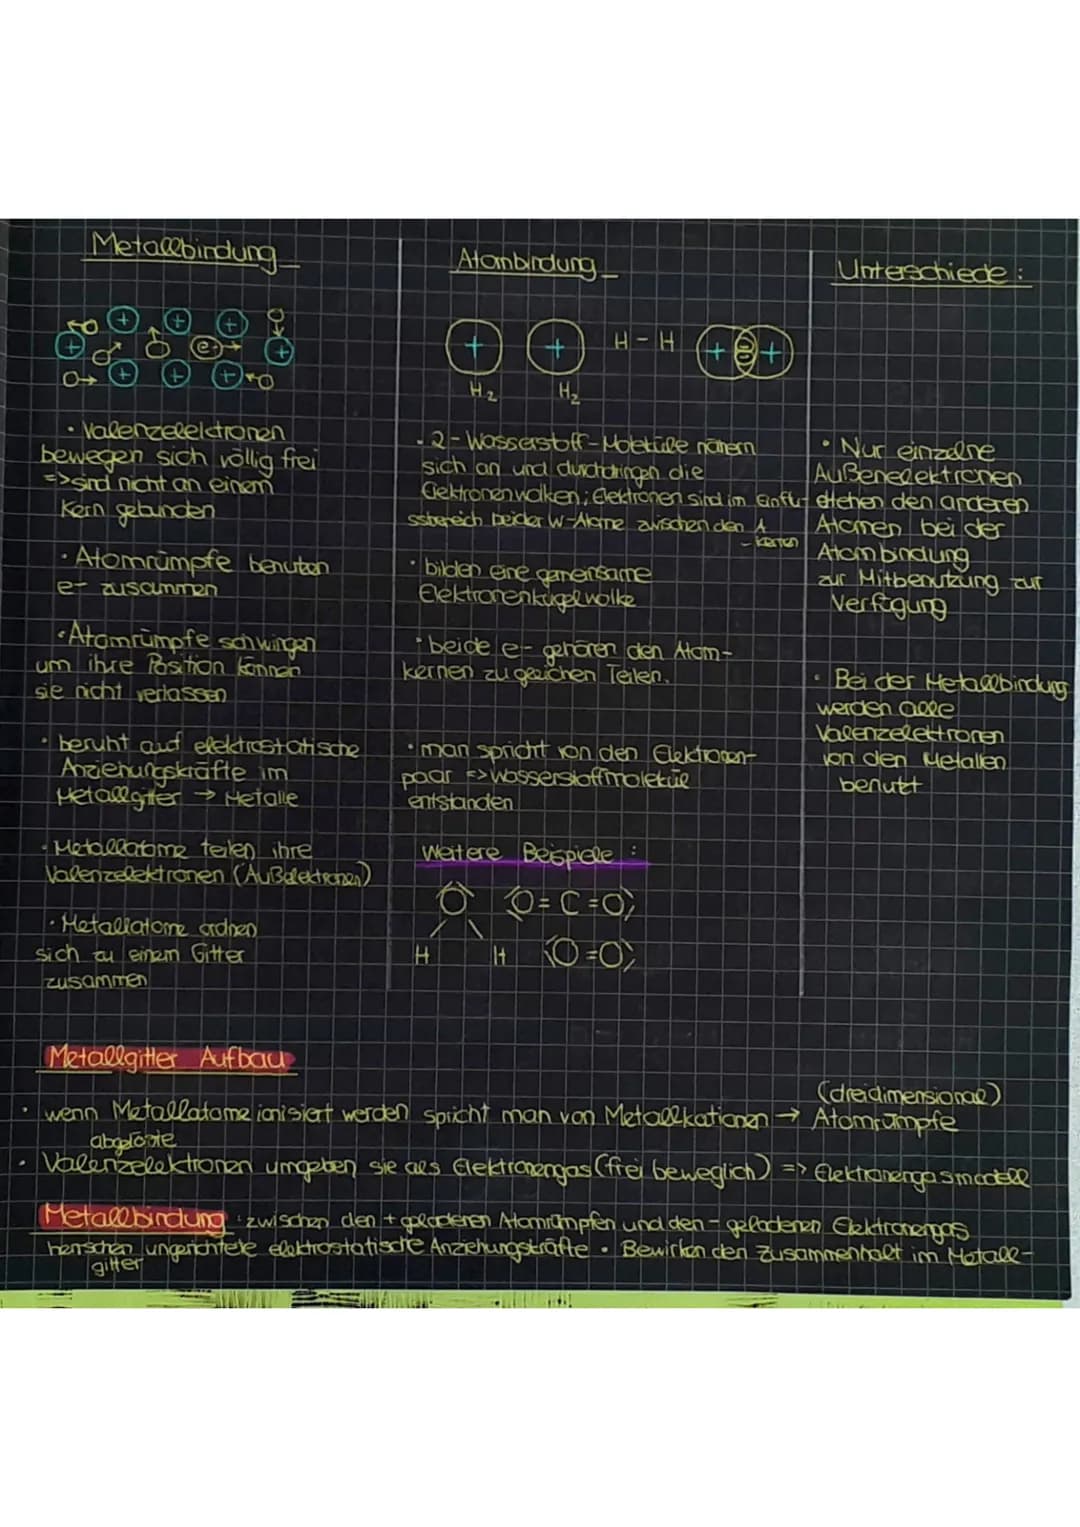 Metallbindung
+ + + + e- + + + +
• Valenzelektronen
bewegen sich völlig frei
=> sind nicht an einem
Kern gebunden
• Atomrümpfe benutzen
e- zusammen
• Atomrümpfe schwingen
um ihre Position können
sie nicht verlassen
• beruht auf elektrostatische
Anziehungskräfte im
Metallgitter → Metalle
• Metallatome teilen ihre
Valenzelektronen (Außelektronen)
• Metallatome ordnen
sich zu einem Gitter
zusammen
Atombindung
+ + H - H + +
H2 H2
• 2-Wasserstoff-Moleküle nähern
sich an und durchdringen die
Elektronenwolken; Elektronen sind im Einflu-
ssbereich beider W-Atome zwischen den A
- kernen
• bilden eine gemeinsame
Elektronenkugelwolke
• beide e- gehören den Atom-
kernen zu gleichen Teilen.
• man spricht von den Elektronen-
paar => Wasserstoffmoleküle
entstanden
Weitere Beispiele :
O O = C = O
H H O = O
Unterschiede :
• Nur einzelne
Außenelektronen
stehen den anderen
Atomen bei der
Atombindung
zur Mitbenutzung zur
Verfügung
• Bei der Metallbindung
werden alle
Valenzelektronen
von den Metallen
benutzt
Metallgitter Aufbau
(dreidimensional)
• wenn Metallatome ionisiert werden spricht man von Metallkationen → Atomrümpfe
abgelöste
• Valenzelektronen umgeben sie als Elektronengas (frei beweglich) => Elektronengasmodell
Metallbindung : zwischen den + geladenen Atomrümpfen und den - geladenen Elektronengas
herrschen ungerichtete elektrostatische Anziehungskräfte • Bewirken den Zusammenhalt im Metall-
gitter